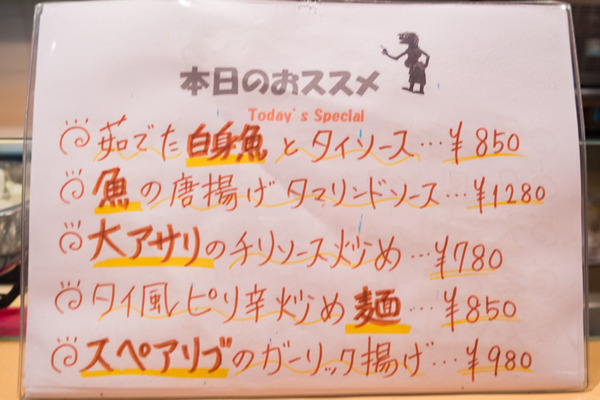 本日のおススメ
Today's Special
茹でた白身魚とタイソース…¥850
魚の唐揚げタマリンドソース…¥1280
大アサリのチリソース炒め…¥780
タイ風ピリ辛炒め麺…¥850
スペアリブのガーリック揚げ…¥980